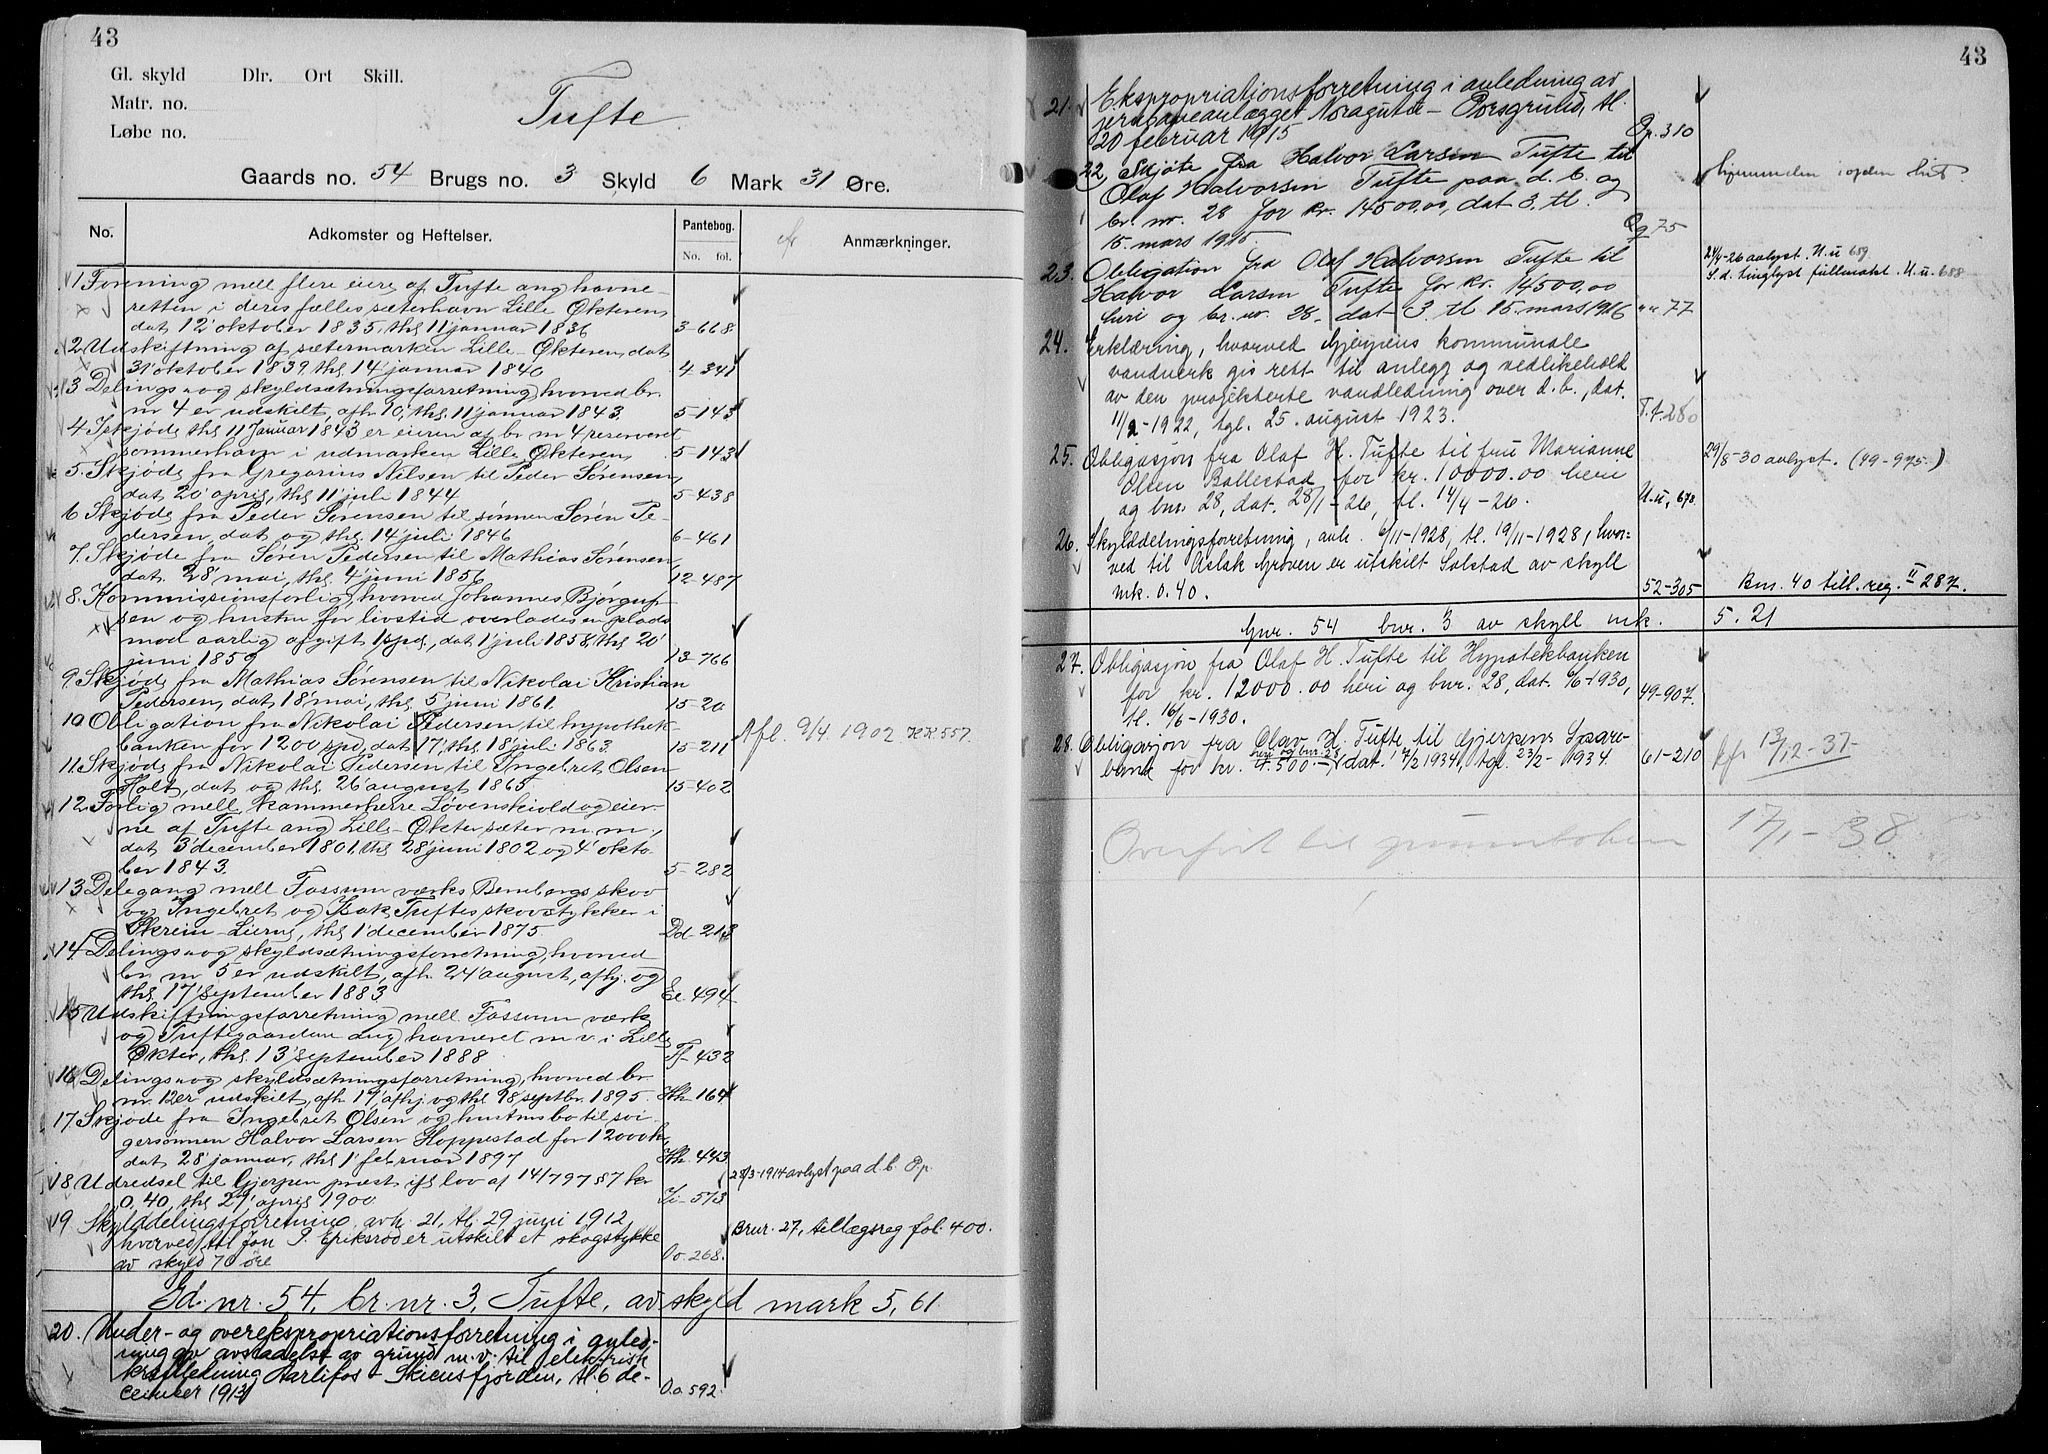 43
Gl. skyld Dlr. Ort Skill.
Matr. no.
Løbe no.
Tufte
Gaards no. 54 Brugs no. 3 Skyld 6 Mark 31 Øre.
No. Adkomster og Heftelser. Pantebog. No. fol. Anmærkninger.
1 Forening mell flere eiere af Tufte ang havne-
retten i deres fælles sæterhavn Lille Økteren,
dat 12' oktober 1835, thl 11 januar 1836 3-668
2 Udskiftning af sætermarken Lille-Økteren, dat
31' oktober 1839, thl. 14 januar 1840 4-341
3 Delings og skyldsætningsforretning, hvorved br.
nr 4 er udskilt, afh 10', thl. 11 januar 1843. 5-143
4 I skjøde thl 11 Januar 1843 er eieren af br nr 4 reserveret
sommerhavn i udmarken Lille Økteren, 5-143
5. Skjøde fra Gregorius Nilsen til Peder Sørensen,
dat 20' april, thl 11' juli 1844 5-438
6 Skjøde fra Peder Sørensen til sønnen Søren Pe-
dersen, dat og thl. 14' juli 1846 6-461
7. Skjøde fra Søren Pedersen til Mathias Sørensen,
dat. 28' mai, thl 4' juni 1856 12-487
8. Kommissionsforlig, hvorved Johannes Bjørguf-
sen og hustru for livstid overlades en plads
mod aarlig afgift 1 spd, dat 1' juli 1858, thl 20'
juni 1859 13-766
9. Skjøde fra Mathias Sørensen til Nikolai Kristian
Pedersen, dat 18' mai, thl 5 juni 1861. 15-20
10 Obligation fra Nikolai Pedersen til hypothek-
banken for 1200 spd, dat 17', thl. 18' juli 1863. 15-211 Afl. 9/4. 1902 KK 557.
11. Skjøde fra Nikolai Pedersen til Ingebret Olsen
Holt, dat og thl 26' august 1865. 15-402
12. Forlig mell kammerherre Løvenskiold og eier-
ne af Tufte ang Lille-Økter sæter m. m.,
dat 3' december 1801, thl. 28' juni 1802 og 4' okto-
ber 1843. 5-282
13 Delegang mell Fossum værks Bembergs skov
og Ingebret og Isak Tuftes skovstykker i
Skrein-Lierne, thl 1' december 1875. Dd-213
14. Delings og skyldsætningsforretning, hvorved
br. nr 5 er udskilt, afh. 24' august, afhj. og
thl. 17' september 1883 Ee. 494
15 Udskiftningsforretning mell. Fossum værk
og Tuftegaardene ang havneret m v. i Lille
Økter, thl. 13' september 1888 Ff-432
16 Delings og skyldsætningsforretning, hvorved br
nr. 12 er udskilt, afh 17', afhj. og thl 28' septbr. 1895. Hh 164
17 Skjøde fra Ingebret Olsen og hustrus bo til svi-
gersønnen Halvor Larsen Hoppestad for 12000 kr,
dat 28' januar, thl 1' februar 1897 Hh. 443
18 Udredsel til Gjerpen præst ifl lov af 14/7 97 87 kr
0,40, thl 27' april 1900 Ii-573 28/3-1914 avlyst paa d. b. Op.
19 Skylddelingsforretning, avh. 21, tl. 29 juni 1912,
hvorved til Jon P. Eriksrød er utskilt et skogstykke
av skyld 70 øre Oo. 268. Brur. 27, tillægsreg fol. 400.
Gd. nr. 54, br. nr. 3, Tufte, av skyld mark 5,61.
20. Under- og overekspropriationsforretning i anled-
ning av avstaaelse av grund m. v. til elektrisk
kraftledning Aarlifos - Skiensfjorden, tl. 6 de-
cember 1913 Oo. 592.
43
21. Ekspropriationsforretning i anledning av
jernbaneanlægget Noragutu - Porsgrund, tl.
20 februar 1915 Op. 310
22, Skjøte fra Halvor Larsen Tufte til
Olaf Halvorsen Tufte paa d. b. og
br. nr. 28 for kr. 14500,00, dat 3. tl.
15. mars 1915. Qq 75
23. Obligation fra Olaf Halvorsen Tufte til
Halvor Larsen Tufte for kr. 14500,00
heri og br. nr. 28, dat 3. tl 15. mars 1916 " " 77
24/4-26 avlyst. U. u 689
S. d. tinglyst fullmakt. U. u. 688
24. Erklæring, hvorved Gjerpens kommunale
vandverk gis rett til anlegg og vedlikehold
av den projekterte vandledning over d. b., dat.
11/2-1922, tgl. 25. august 1923. T. t. 280
25. Obligasjon fra Olaf H. Tufte til fru Marianne
Olsen Ballestad for kr. 10000.00 heri
og bnr. 28, dat. 28/1-26, tl. 14/4-26. U. u, 678. 29/8-30 avlyst. (49-975.)
26. Skylddelingsforretning, avh. 6/11-1928, tl. 19/11-1928, hvor-
ved til Aslak Grøven er utskilt Solstad av skyll
mk. 0.40. 52-305 bnr. 40 till. reg. II 287.
Gnr. 54 bnr. 3 av skyll mk. 5.21
27. Obligasjon fra Olaf H. Tufte til Hypotekbanken
for kr. 12000.00 heri og bnr. 28, dat. 6/6-1930, 49-907.
tl. 16/6-1930.
28. Obligasjon fra Olav H. Tufte til Gjerpens Spare-
heri og bnr. 28
bank for kr. 4.500.-, dat. 17/2 1934, tgl. 23/2-1934. 61-210 13/12-37-
Overført til grunnboken 17/1-38